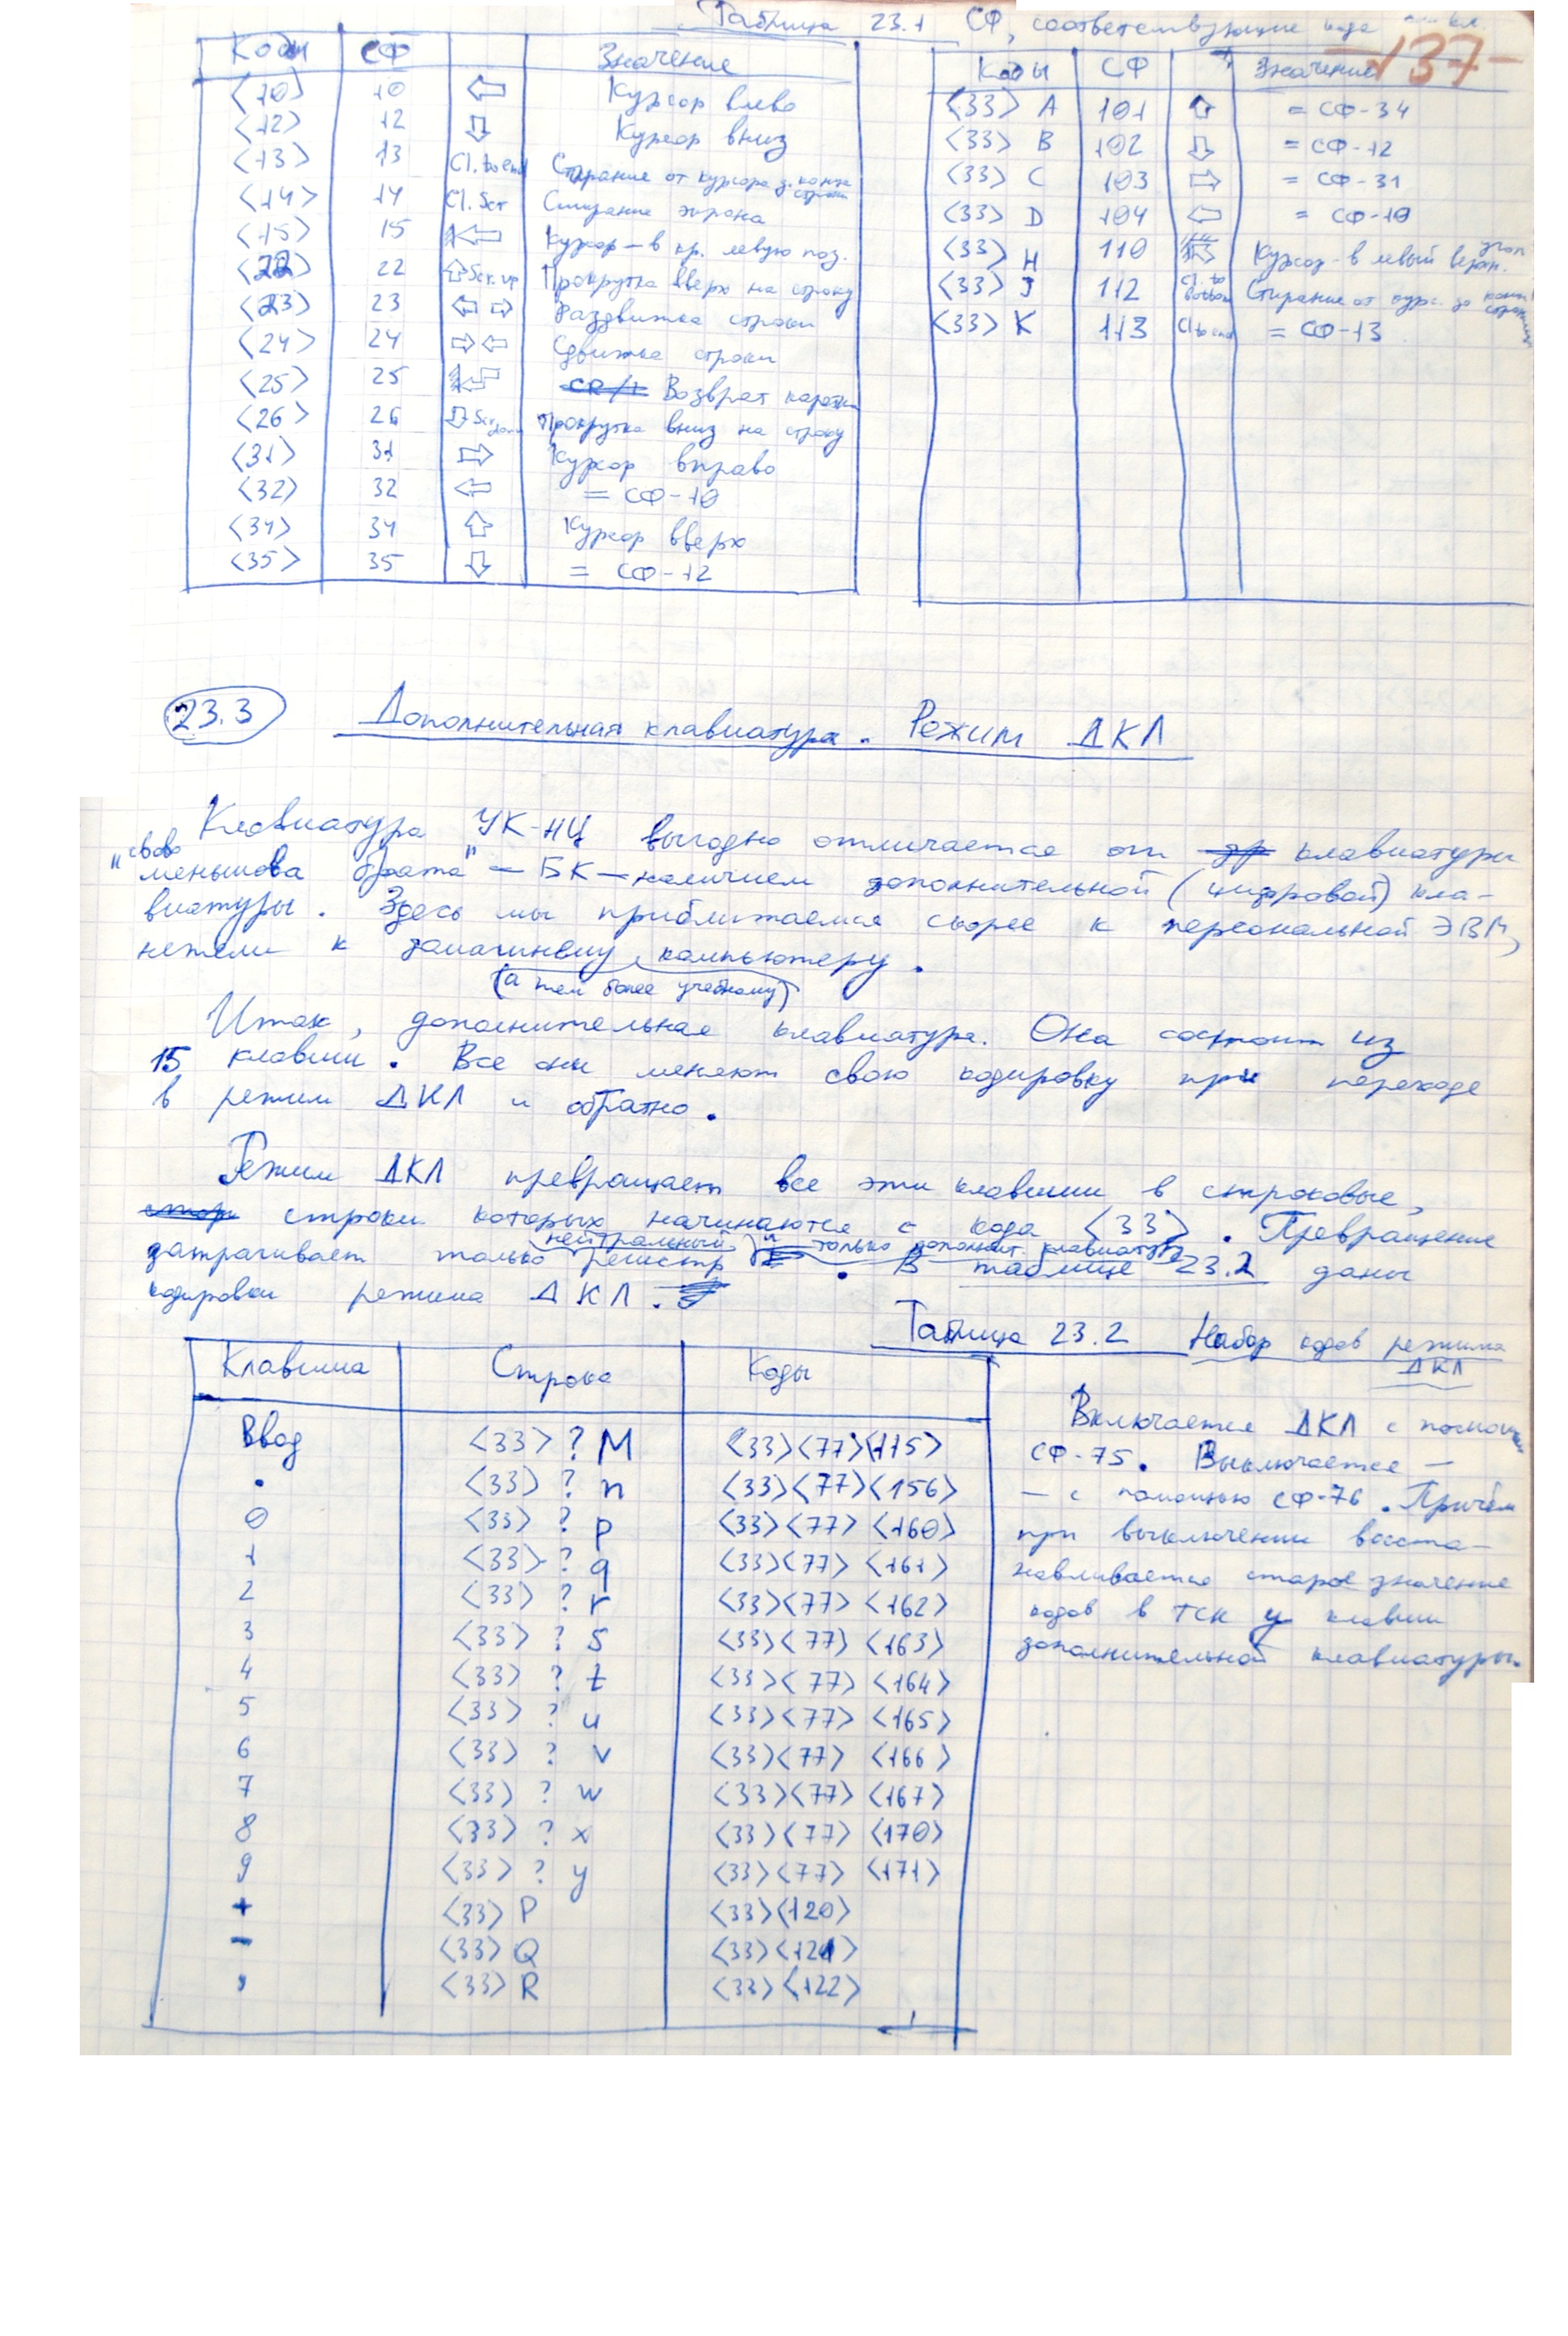 Таблица 23.1 СФ, соответствующие
-137-
Коды СФ Значение
<10> 10 ⇦ Курсор влево
<12> 12 ⇩ Курсор вниз
<13> 13 Cl. to end Стирание от курсора д. конца строки
<14> 14 Cl. Scr Стирание экрана
<15> 15 ⇦ Курсор - в кр. левую поз.
<22> 22 ⇧ Scr. up Прокрутка вверх на строку
<23> 23 ⇦ ⇨ Раздвижка строки
<24> 24 ⇨ ⇦ Сдвижка строки
<25> 25 Возврат каретки
<26> 26 ⇩ Scr. down Прокрутка вниз на строку
<31> 31 ⇨ Курсор вправо
<32> 32 ⇦ = СФ-10
<34> 34 ⇧ Курсор вверх
<35> 35 ⇩ = СФ-12
Коды СФ Значение
<33> A 101 ⇧ = СФ-34
<33> B 102 ⇩ = СФ-12
<33> C 103 ⇨ = СФ-31
<33> D 104 ⇦ = СФ-10
<33> H 110 Курсор - в левый верхн. угол
<33> J 112 Cl. to bottom Стирание от курс. до конца
<33> K 113 Cl to end = СФ-13
23.3 Дополнительная клавиатура. Режим ДКЛ
Клавиатура УК-НЦ выгодно отличается от клавиатуры
"свово меньшова брата" - БК - наличием дополнительной (цифровой) кла-
виатуры. Здесь мы приближаемся скорее к персональной ЭВМ,
нежели к домашнему (а тем более учебному) компьютеру.
Итак, дополнительная клавиатура. Она состоит из
15 клавиш. Все они меняют свою кодировку при переходе
в режим ДКЛ и обратно.
Режим ДКЛ превращает все эти клавиши в строковые,
строки которых начинаются с кода <33>. Превращение
затрагивает только нейтральный регистр и только дополнит. клавиатуру. В таблице 23.2 даны
кодировки режима ДКЛ.
Таблица 23.2 Набор кодов режима
ДКЛ
Клавиша Строка Коды
Ввод <33> ? M <33><77><115>
. <33> ? n <33><77><156>
0 <33> ? p <33><77><160>
1 <33> ? q <33><77><161>
2 <33> ? r <33><77><162>
3 <33> ? s <33><77><163>
4 <33> ? t <33><77><164>
5 <33> ? u <33><77><165>
6 <33> ? v <33><77><166>
7 <33> ? w <33><77><167>
8 <33> ? x <33><77><170>
9 <33> ? y <33><77><171>
+ <33> P <33><120>
- <33> Q <33><121>
, <33> R <33><122>
Включается ДКЛ с помощью
СФ-75. Выключается -
- с помощью СФ-76. Причём
при выключении восста-
навливается старое значение
кодов в ТСК у клавиш
дополнительной клавиатуры.